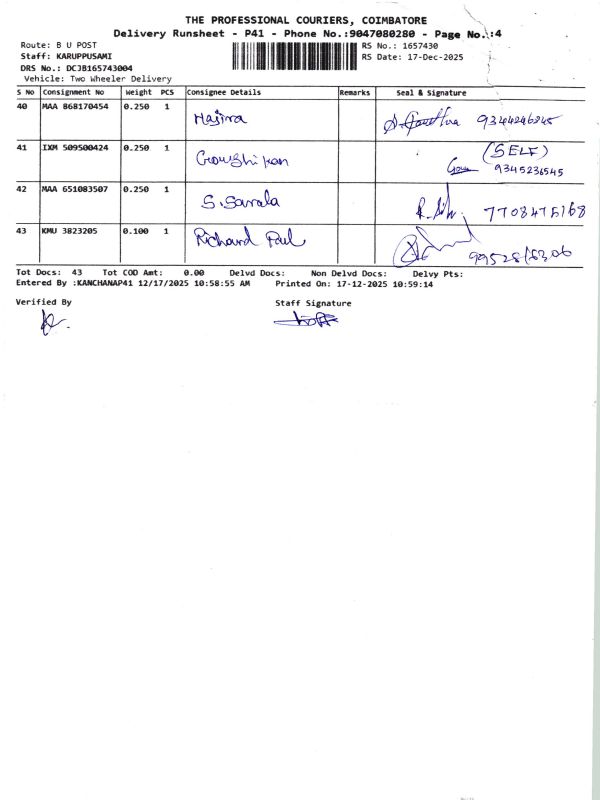 THE PROFESSIONAL COURIERS, COIMBATORE
Delivery Runsheet - P41 - Phone No.:9047080280 - Page No.:4
Route: B U POST
RS No.: 1657430
Staff: KARUPPUSAMI
RS Date: 17-Dec-2025
DRS No.: DCJB165743004
Vehicle: Two Wheeler Delivery
S No Consignment No Weight PCS Consignee Details Remarks Seal & Signature
40 MAA 868170454 0.250 1 Hajira
41 IXM 509500424 0.250 1 Gowshikan (SELF) 9345236545
42 MAA 651083507 0.250 1 S. Sarala 7708475168
43 KMU 3823205 0.100 1 Richard Paul
Tot Docs: 43 Tot COD Amt: 0.00 Delvd Docs: Non Delvd Docs: Delvy Pts:
Entered By :KANCHANAP41 12/17/2025 10:58:55 AM Printed On: 17-12-2025 10:59:14
Verified By Staff Signature